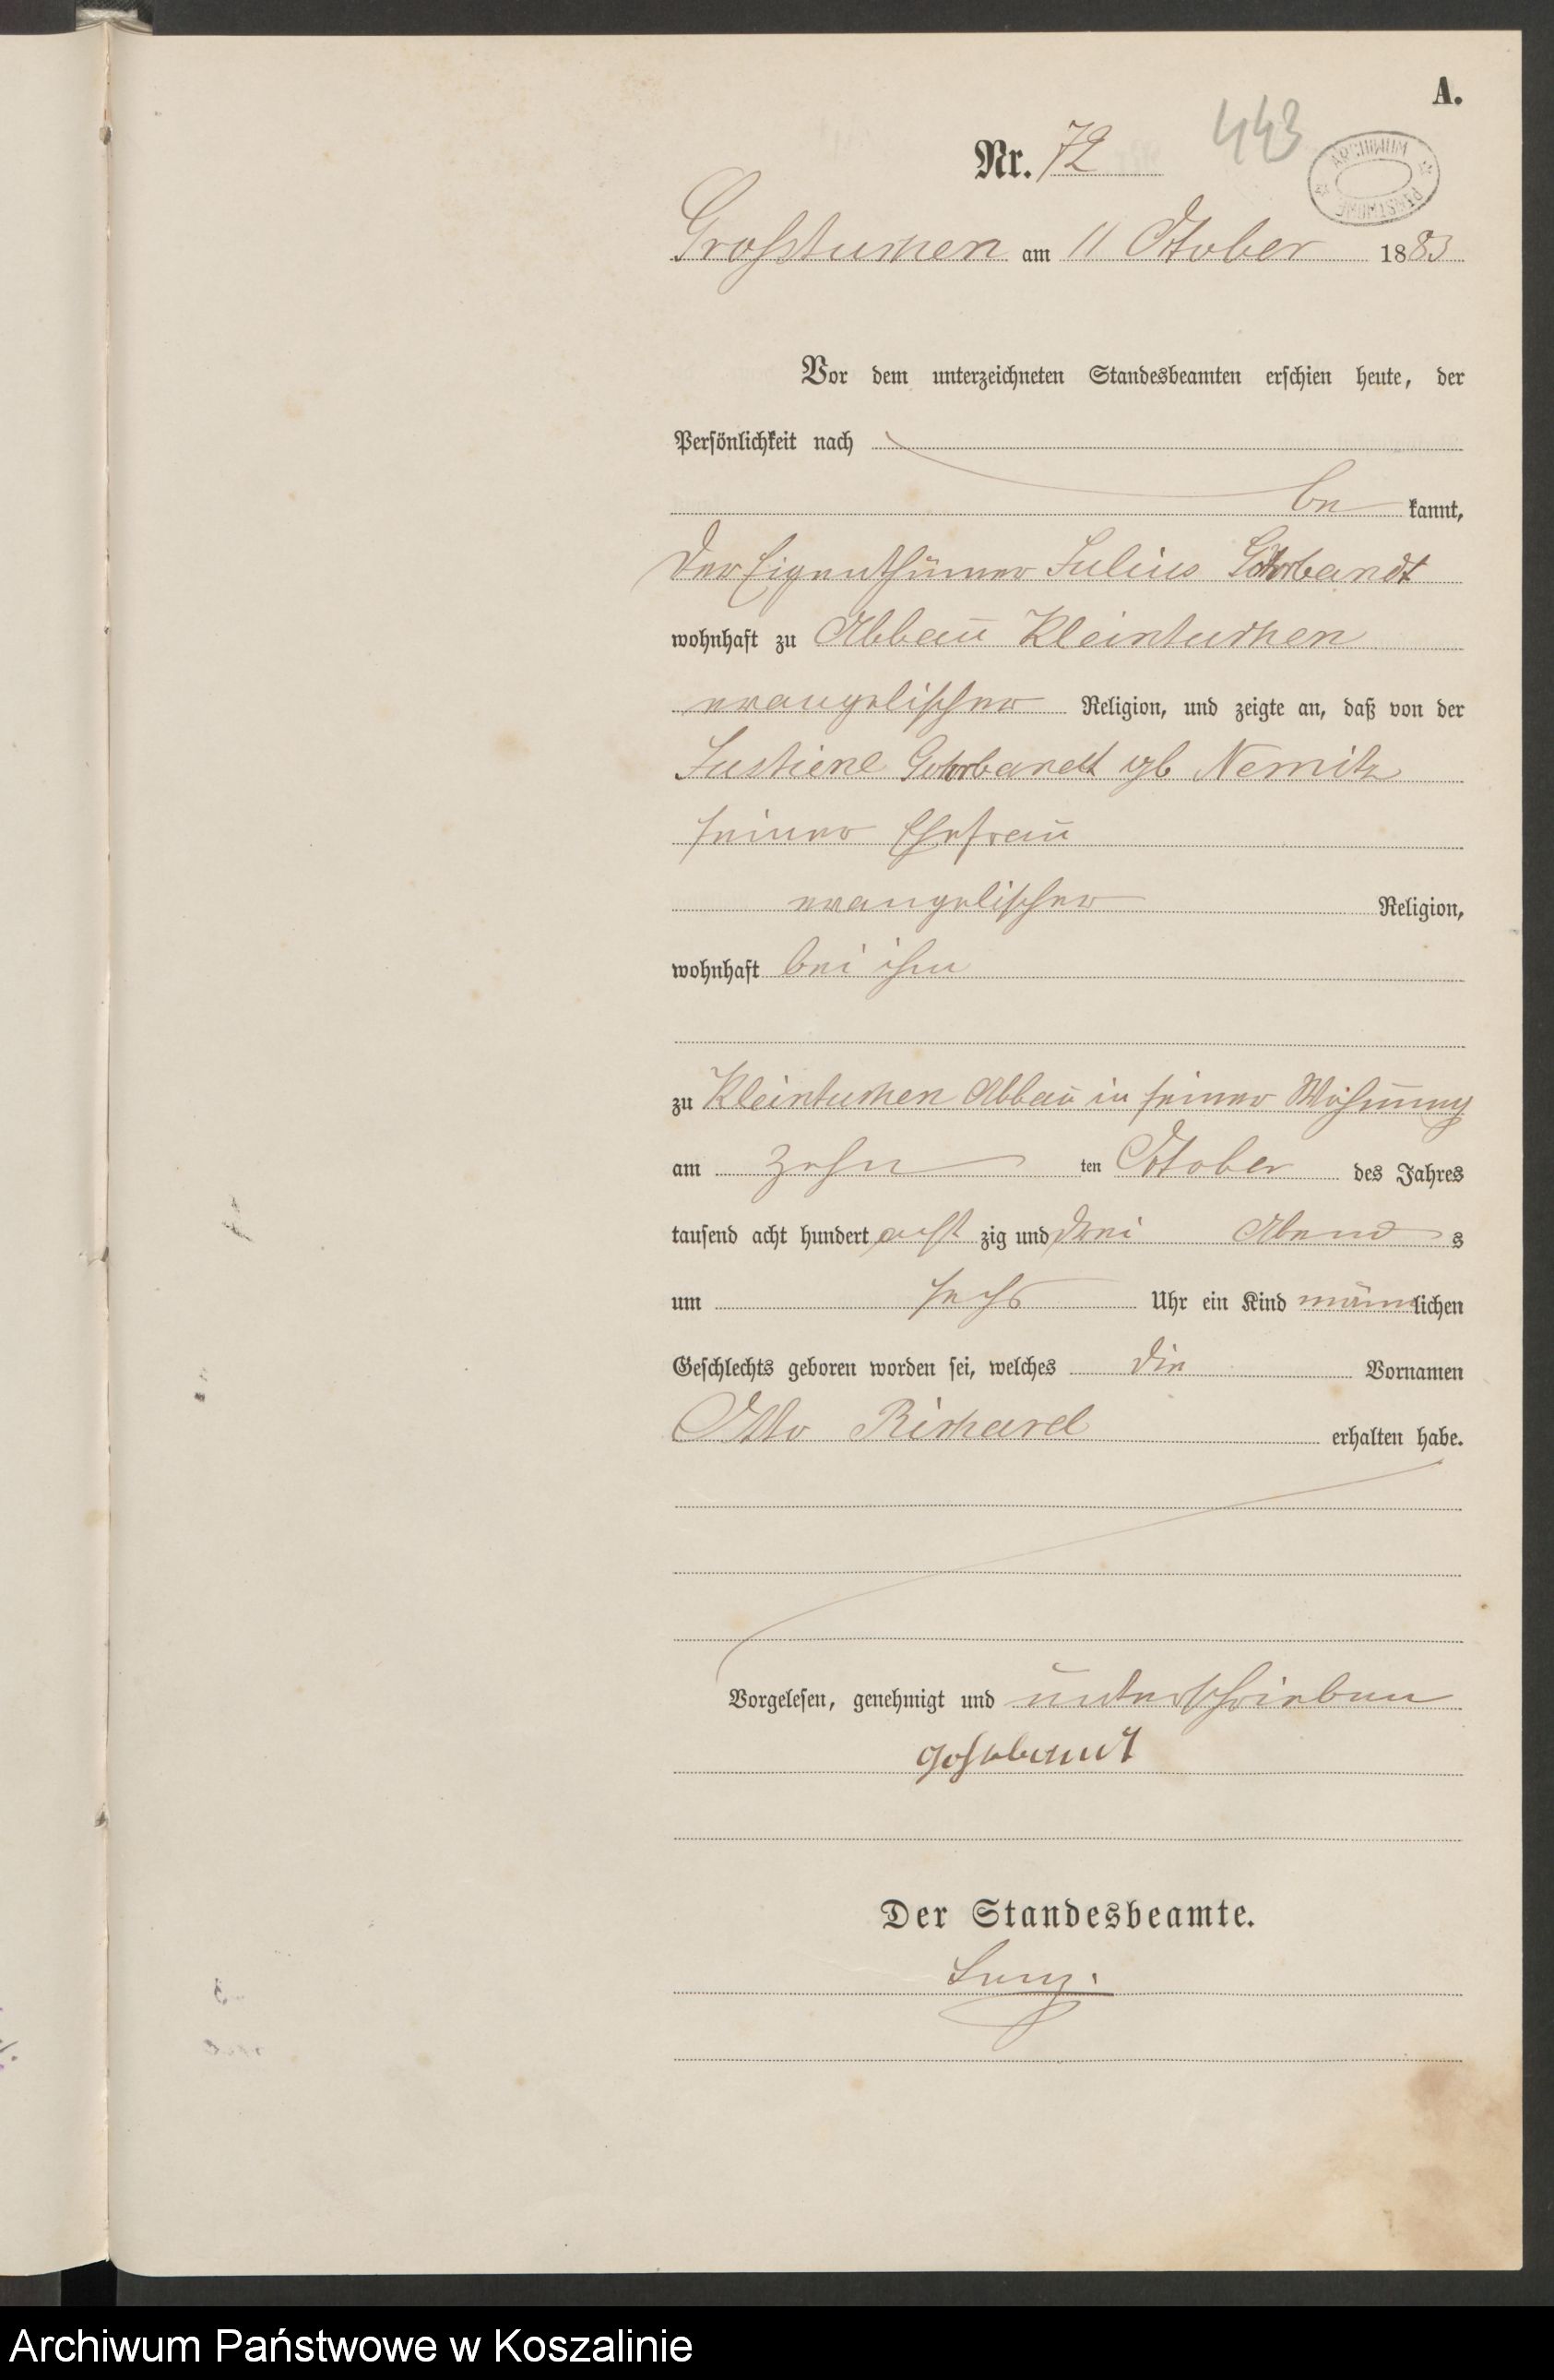 A.
Nr. 72
443
ARCHIWUM PAŃSTWOWE
Großtuchen am 11 October 1883
Vor dem unterzeichneten Standesbeamten erschien heute, der
Persönlichkeit nach
be kannt,
der Eigenthümer Julius Gohrbandt
wohnhaft zu Abbau Kleintuchen
evangelischer Religion, und zeigte an, daß von der
Justiene Gohrbandt gb Nemitz
seiner Ehefrau
evangelischer Religion,
wohnhaft bei ihm
zu Kleintuchen Abbau in seiner Wohnung
am zehn ten October des Jahres
tausend acht hundert acht zig und drei Abend s
um sechs Uhr ein Kind männlichen
Geschlechts geboren worden sei, welches die Vornamen
Otto Richard erhalten habe.
Vorgelesen, genehmigt und unterschrieben
Gohrbandt
Der Standesbeamte.
Archiwum Państwowe w Koszalinie